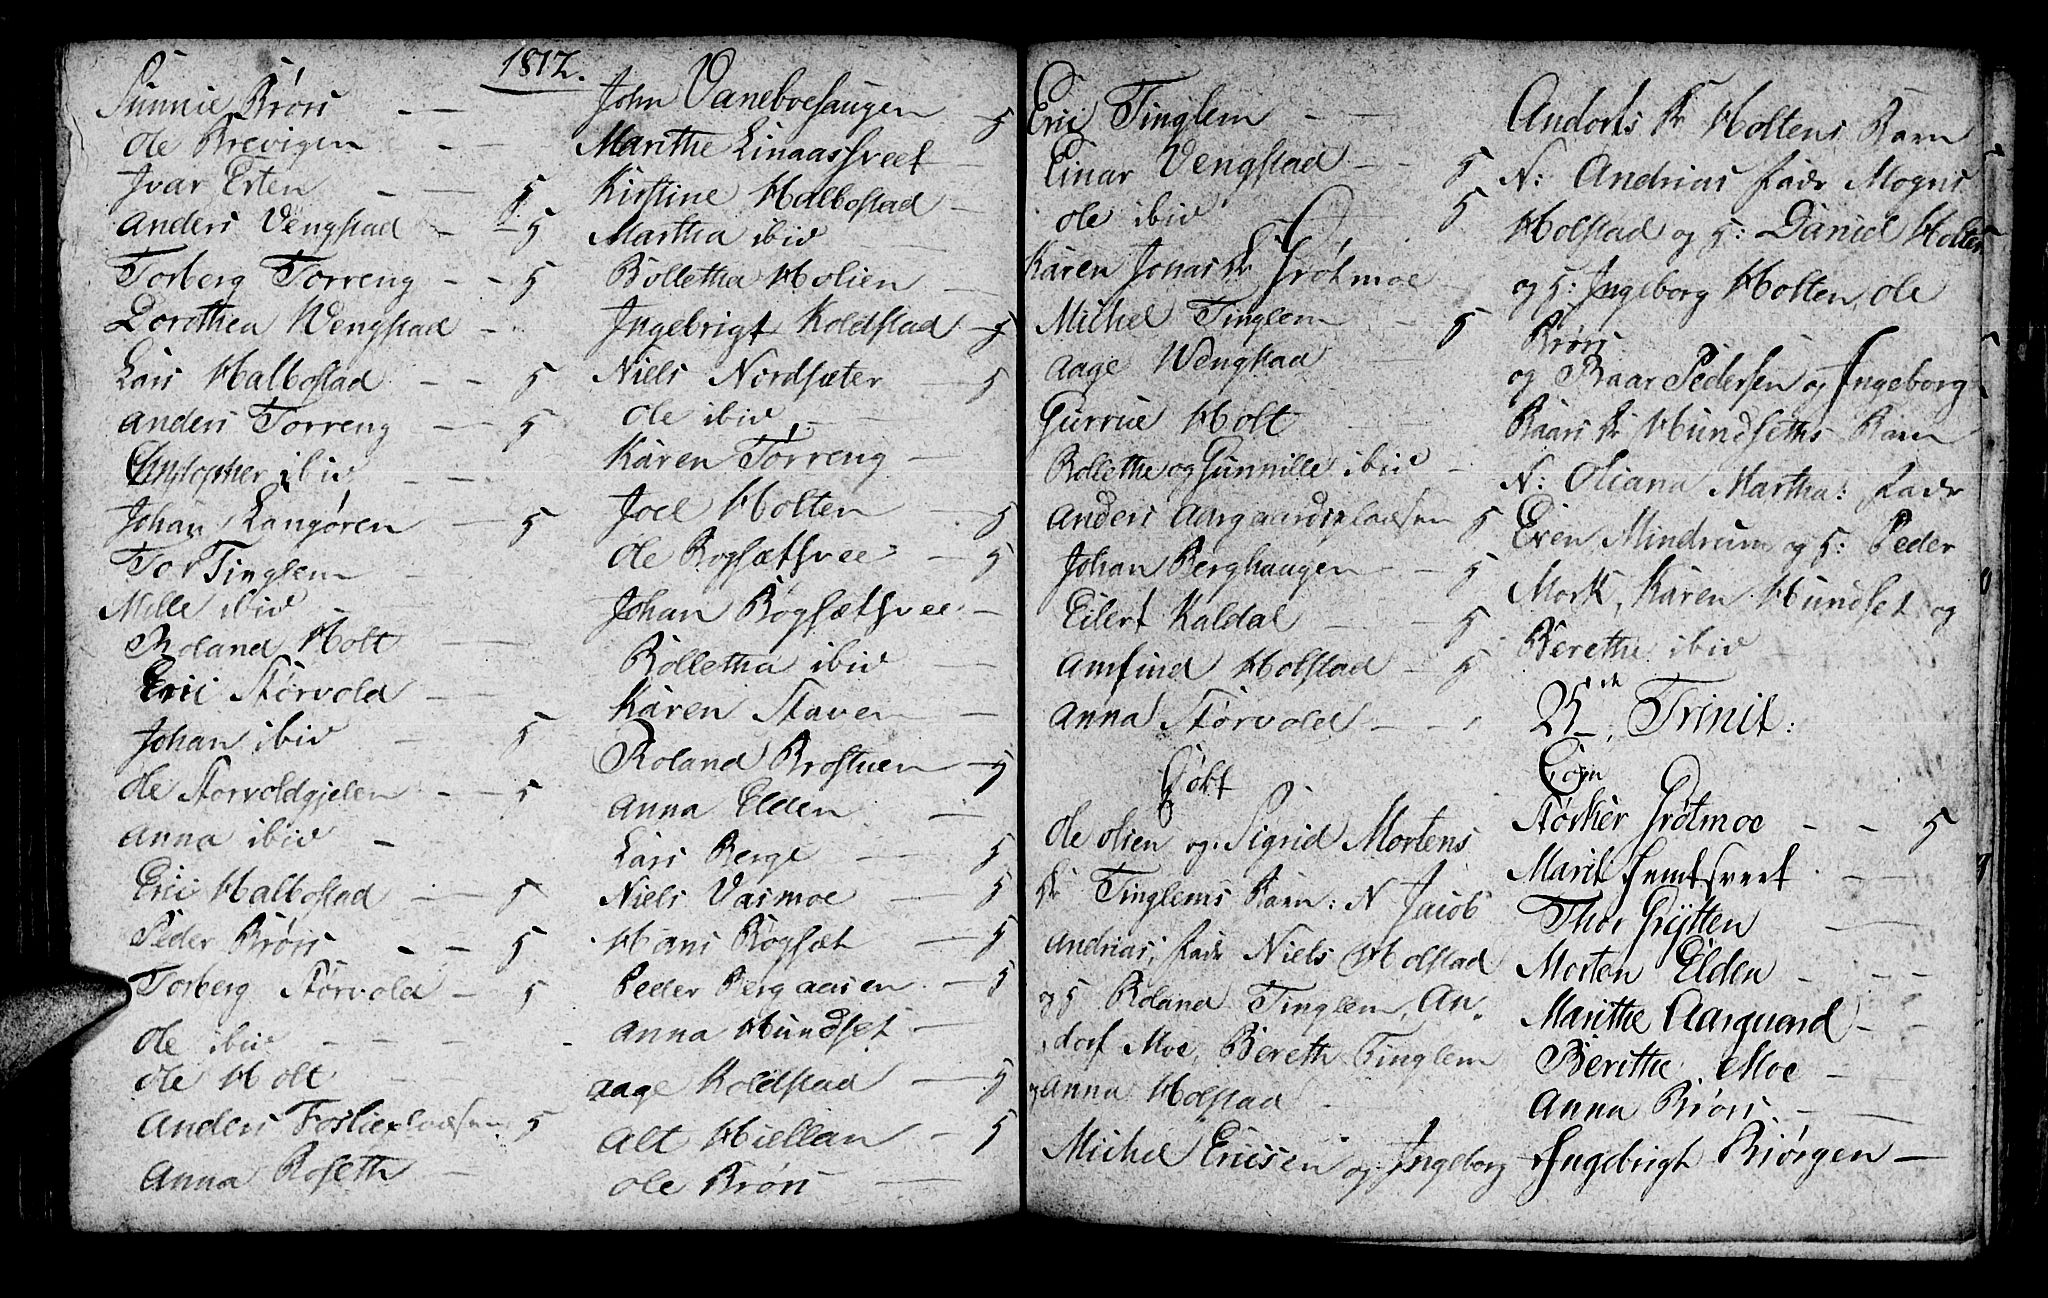 1812.
Sünnie Brørs - -
Ole Brevigen - -
Ivar Erten - - 5
Anders Vengstad - - 5
Torberg Torreng - - 5
Dorothea Wengstad -
Lars Halbostad - - 5
Anders Torreng - 5
Christopher ibid - -
Johan Langøren - 5
Tor Tinglem -
Mille ibid
Roland Holt -
Eric Størvold -
Johan ibid - 5
Ole Størvoldgjelen - - 5
Anna ibid -
Eric Halbostad - - 5
Peder Brørs - - 5
Torberg Størvold - 5
Ole ibid - -
Ole Holt - -
Anders Fosliepladsen 5
Anna Roseth -
John Vaneboehaugen - 5
Marithe Linaashveet -
Kirstine Halbostad -
Martha ibid -
Bolletha Holien -
Ingebrigt Koldstad - 5
Niels Nordsæter - 5
Ole ibid -
Karen Tørreng -
Joel Holten - 5
Ole Rogsæthvee - 5
Johan Rögsæthvee -
Bolletha ibid -
Karen Staven -
Roland Brostuen - 5
Anna Elden -
Lars Berge - 5
Niels Vasmoe - 5
Hans Rögsæt - 5
Peder Bergaasen - 5
Anna Hundset -
Aage Koldstad - 5
Alt Hiellan - 5
Ole Brørs -
Eric Tinglem - -
Einar Vengstad - - 5
Ole ibid 5
Karen Jonas Dr Grøtmoe -
Michel Tinglem - 5
Aage Wengstad -
Gurrue Holt -
Bollethe og Gunnille ibid -
Anders Aargaardspladsen 5
Johan Berghaugen - - 5
Eilert Kaldal - - 5
Amfind Holstad - 5
Anna Størvold - -
Døbt
Ole Olsen og Sigrid Mortens
Dr Tinglems Barn: N Jacob
Andrias, Fadr Niels Holstad
og 5 Roland Tinglem, An-
dorf Moe, Bereth Tinglem
Anna Holstad -
Michel Ericsen og Ingeborg
Andorts Dr Holtens Barn
N: Andrias Fadr Mogns
Holstad og 5: Daniel Holten
og 5: Ingeborg Holten, Ole
Brørs
og Baar Pedersen og Ingeborg
Baars Dr Hundseths Barn
N: Oliana Martha: Fadr
Even Mindrum og 5: Peder
Mork, Karen Hundset og
Berethe ibid -
25de Trinit:
Størker Grøtmoe - - 5
Marit Semshveet - -
Thor Grÿtten -
Morten Elden - - -
Marithe Aarguard - -
Berithe Moe - -
Anna Brørs - -
Ingebrigt Biørgen -